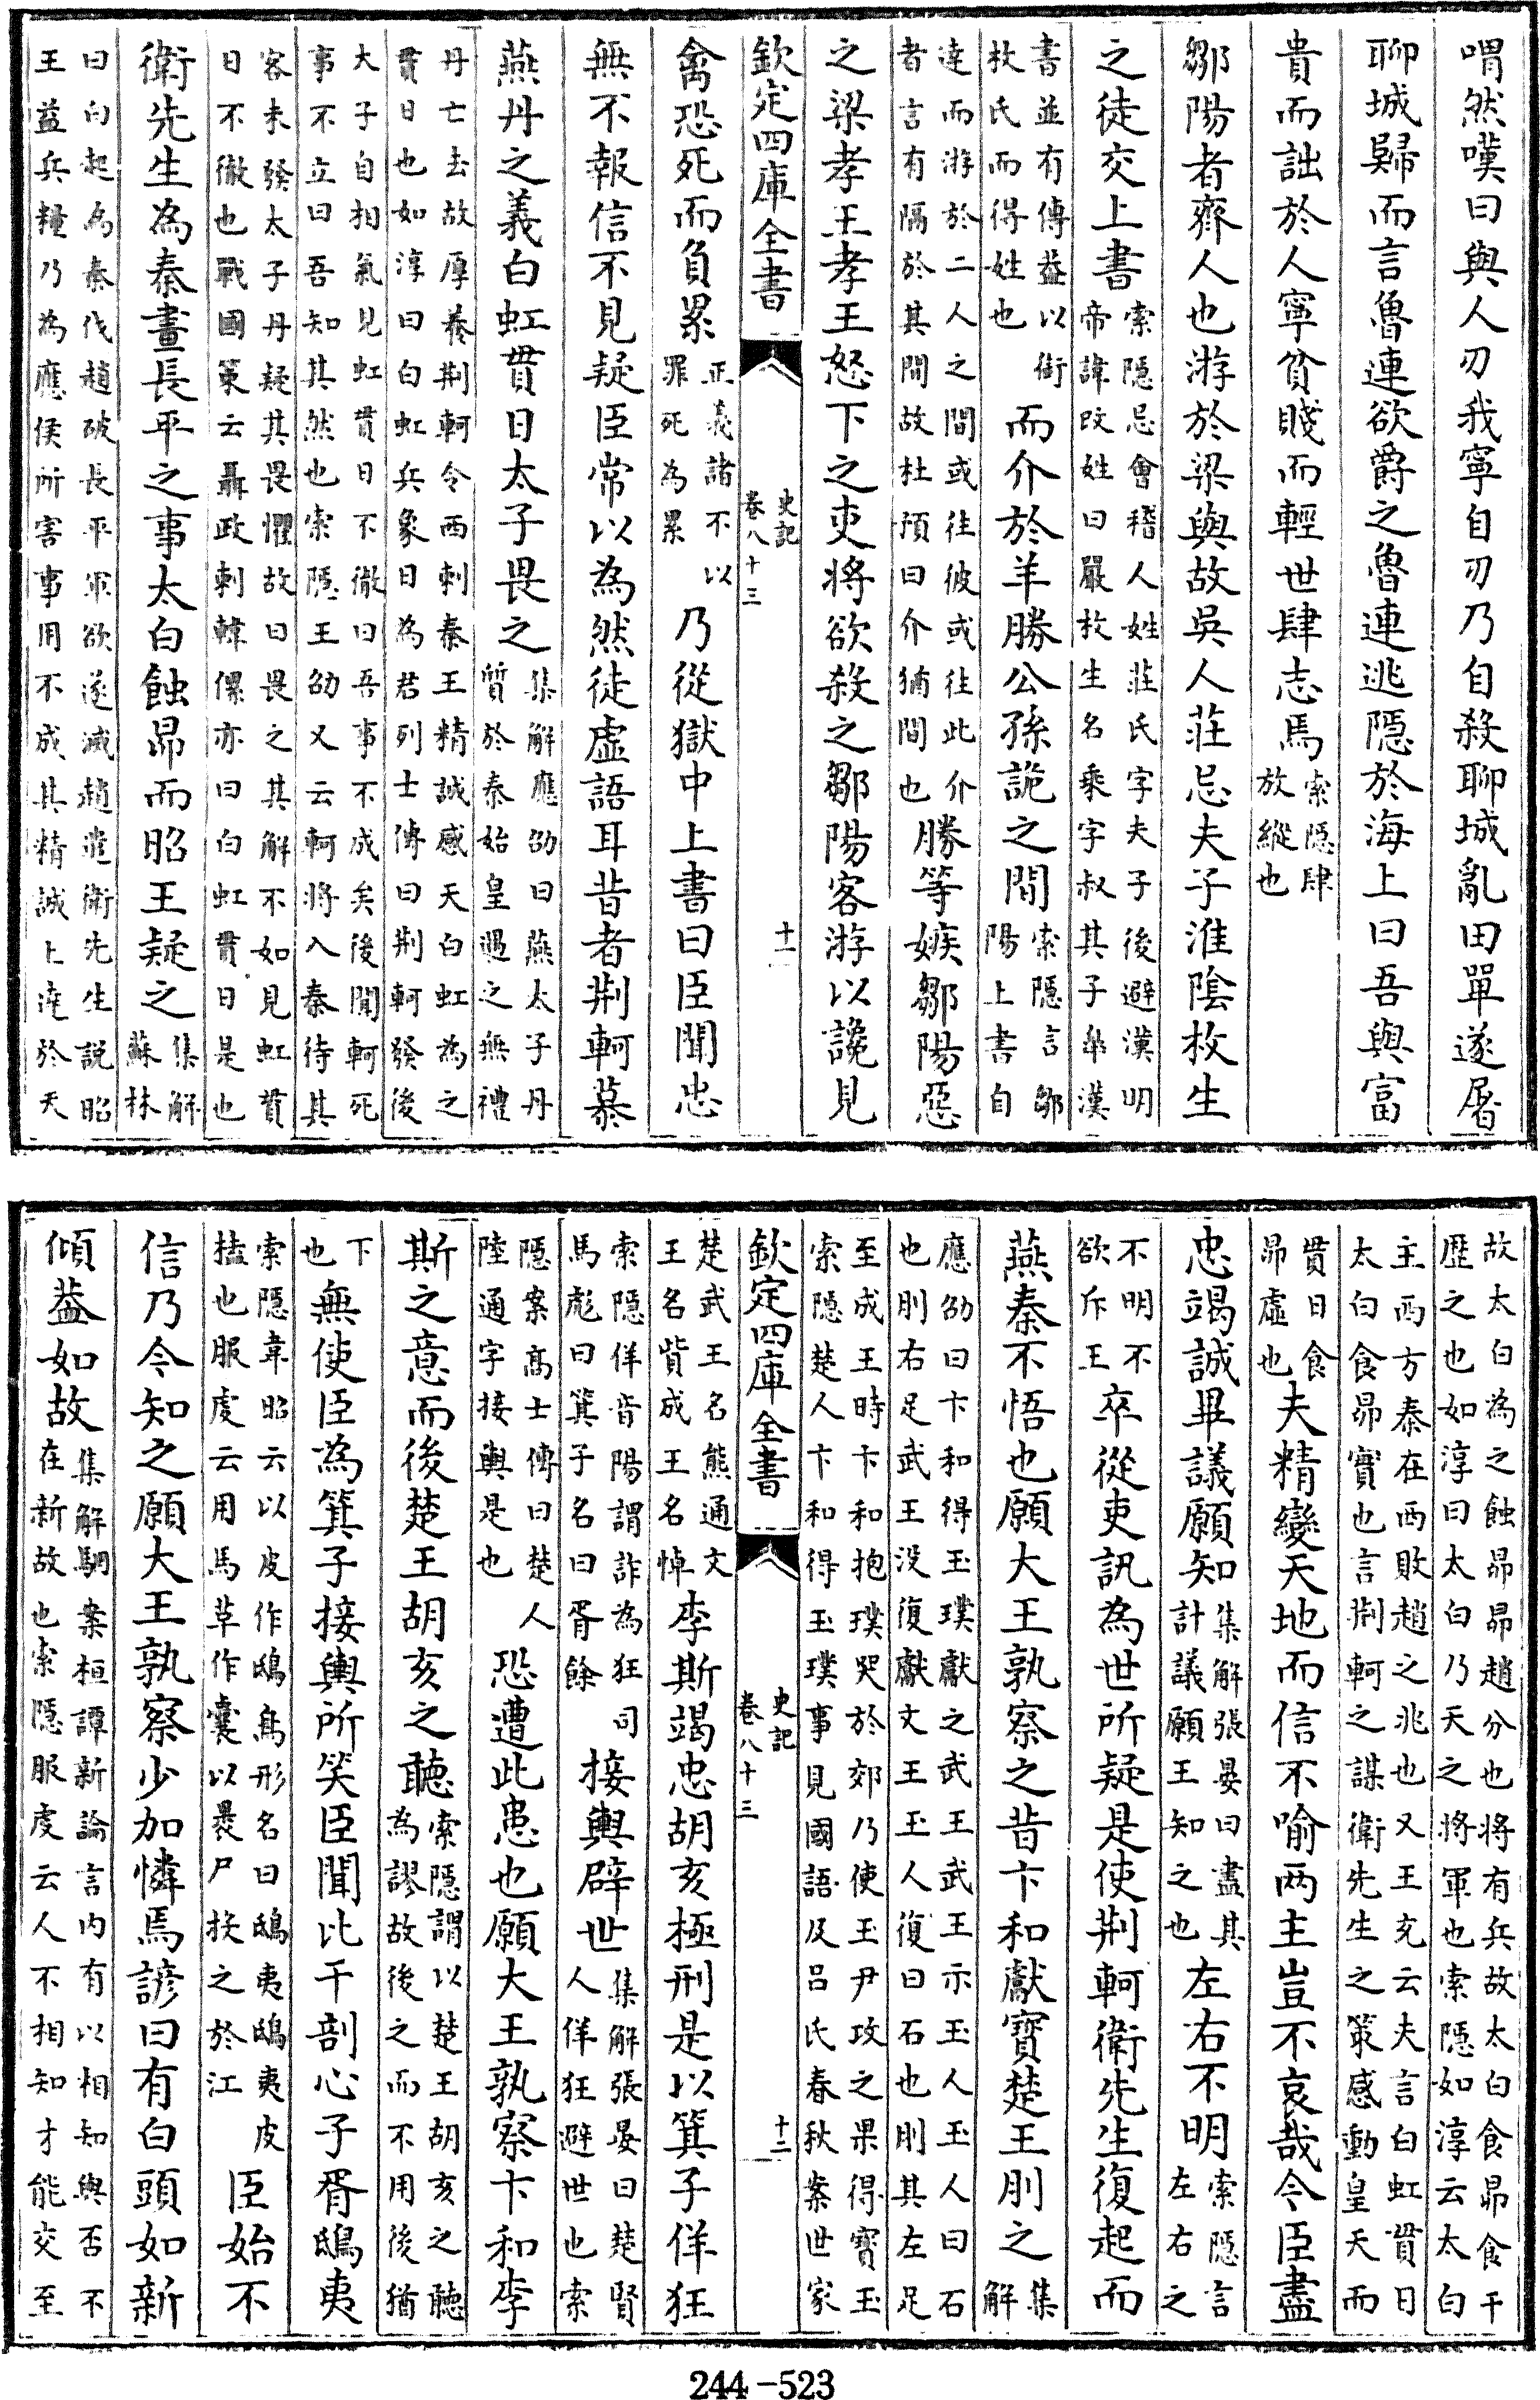 喟然嘆曰與人刃我寧自刃乃自殺聊城亂田單遂屠
聊城歸而言魯連欲爵之魯連逃隱於海上曰吾與富
貴而詘於人寧貧賤而輕世肆志焉索隱肆放縱也
鄒陽者齊人也游於梁與故吳人莊忌夫子淮陰枚生
之徒交上書索隱忌會稽人姓莊氏字夫子後避漢明帝諱改姓曰嚴枚生名乘字叔其子皋漢
書並有傳蓋以銜枚氏而得姓也而介於羊勝公孫詭之間索隱言鄒陽上書自
達而游於二人之間或往彼或往此介者言有隔於其間故杜預曰介猶間也勝等嫉鄒陽惡
之梁孝王孝王怒下之吏將欲殺之鄒陽客游以讒見
欽定四庫全書 史記卷八十三 十一
禽恐死而負累正義諸不以罪死為累乃從獄中上書曰臣聞忠
無不報信不見疑臣常以為然徒虛語耳昔者荆軻慕
燕丹之義白虹貫日太子畏之集解應劭曰燕太子丹質於秦始皇遇之無禮
丹亡去故厚養荆軻令西刺秦王精誠感天白虹為之貫日也如淳曰白虹兵象日為君列士傳曰荆軻發後
太子自相氣見虹貫日不徹曰吾事不成矣後聞軻死事不立曰吾知其然也索隱王劭又云軻將入秦待其
客未發太子丹疑其畏懼故曰畏之其解不如見虹貫日不徹也戰國策云聶政刺韓傫亦曰白虹貫日是也
衛先生為秦畫長平之事太白蝕昴而昭王疑之集解蘇林
曰白起為秦伐趙破長平軍欲遂滅趙遣衛先生説昭王益兵糧乃為應侯所害事用不成其精誠上達於天
故太白為之蝕昴昴趙分也將有兵故太白食昴食干歴之也如淳曰太白乃天之將軍也索隱如淳云太白
主西方秦在西敗趙之兆也又王充云夫言白虹貫日太白食昴實也言荆軻之謀衛先生之策感動皇天而
貫日食昴虛也夫精變天地而信不喻兩主豈不哀哉今臣盡
忠竭誠畢議願知集解張晏曰盡其計議願王知之也左右不明索隱言左右之
不明不欲斥王卒從吏訊為世所疑是使荆軻衛先生復起而
燕秦不悟也願大王孰察之昔卞和獻寶楚王刖之集解
應劭曰卞和得玉璞獻之武王武王示玉人玉人曰石也刖右足武王没復獻文王玉人復曰石也刖其左足
至成王時卞和抱璞哭於郊乃使玉尹攻之果得寶玉索隱楚人卞和得玉璞事見國語及呂氏春秋案世家
欽定四庫全書 史記卷八十三 十二
楚武王名熊通文王名貲成王名惲李斯竭忠胡亥極刑是以箕子佯狂
索隱佯音陽謂詐為狂司馬彪曰箕子名曰胥餘接輿辟世集解張晏曰楚賢人佯狂避世也索
隱案高士傳曰楚人陸通字接輿是也恐遭此患也願大王孰察卞和李
斯之意而後楚王胡亥之聽索隱謂以楚王胡亥之聽為謬故後之而不用後猶
下也無使臣為箕子接輿所笑臣聞比干剖心子胥鴟夷
索隱韋昭云以皮作鴟鳥形名曰鴟夷鴟夷皮榼也服虔云用馬革作囊以裹尸投之於江臣始不
信乃今知之願大王孰察少加憐焉諺曰有白頭如新
傾葢如故集解駰案桓譚新論言内有以相知與否不在新故也索隱服虔云人不相知才能交至
244-523